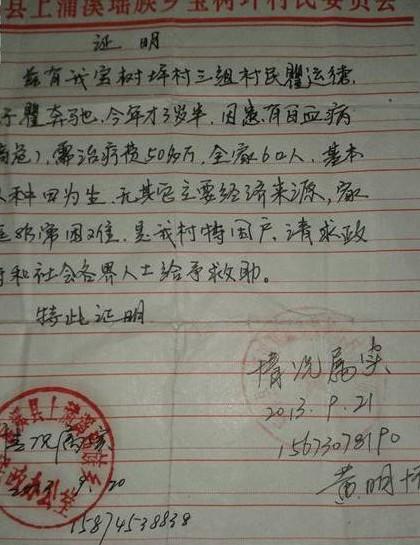 县上蒲溪瑶族乡宝树坪村民委员会
证 明
兹有我宝树坪村三组村民瞿运德,
子瞿奔驰,今年才3岁半,因患有白血病
高危),需治疗费50多万,全家6口人,基本
种田为生,无其它主要经济来源,家
庭非常困难,是我村特困户,请求政
和社会各界人士给予救助。
特此证明
情况属实
2013.9.21
15673078190
黄明
情况属实
2013.9.20
15874538838